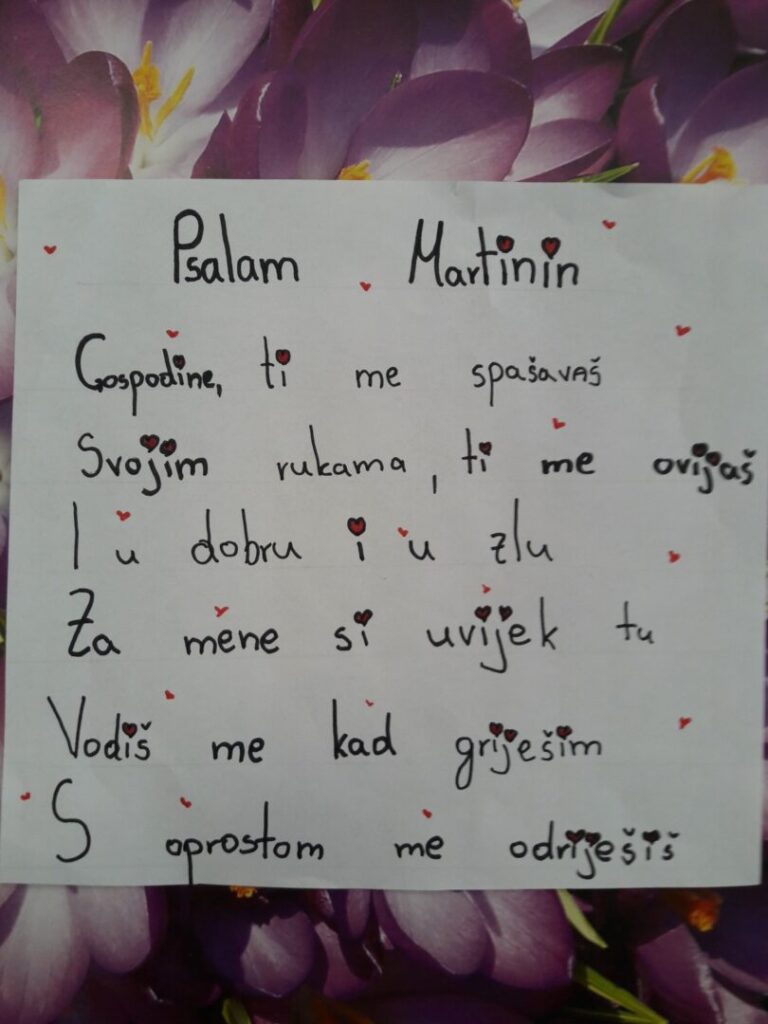 Psalam Martinin
Gospodine, ti me spašavaš
Svojim rukama, ti me ovijaš
I u dobru i u zlu
Za mene si uvijek tu
Vodiš me kad griješim
S oprostom me odriješiš